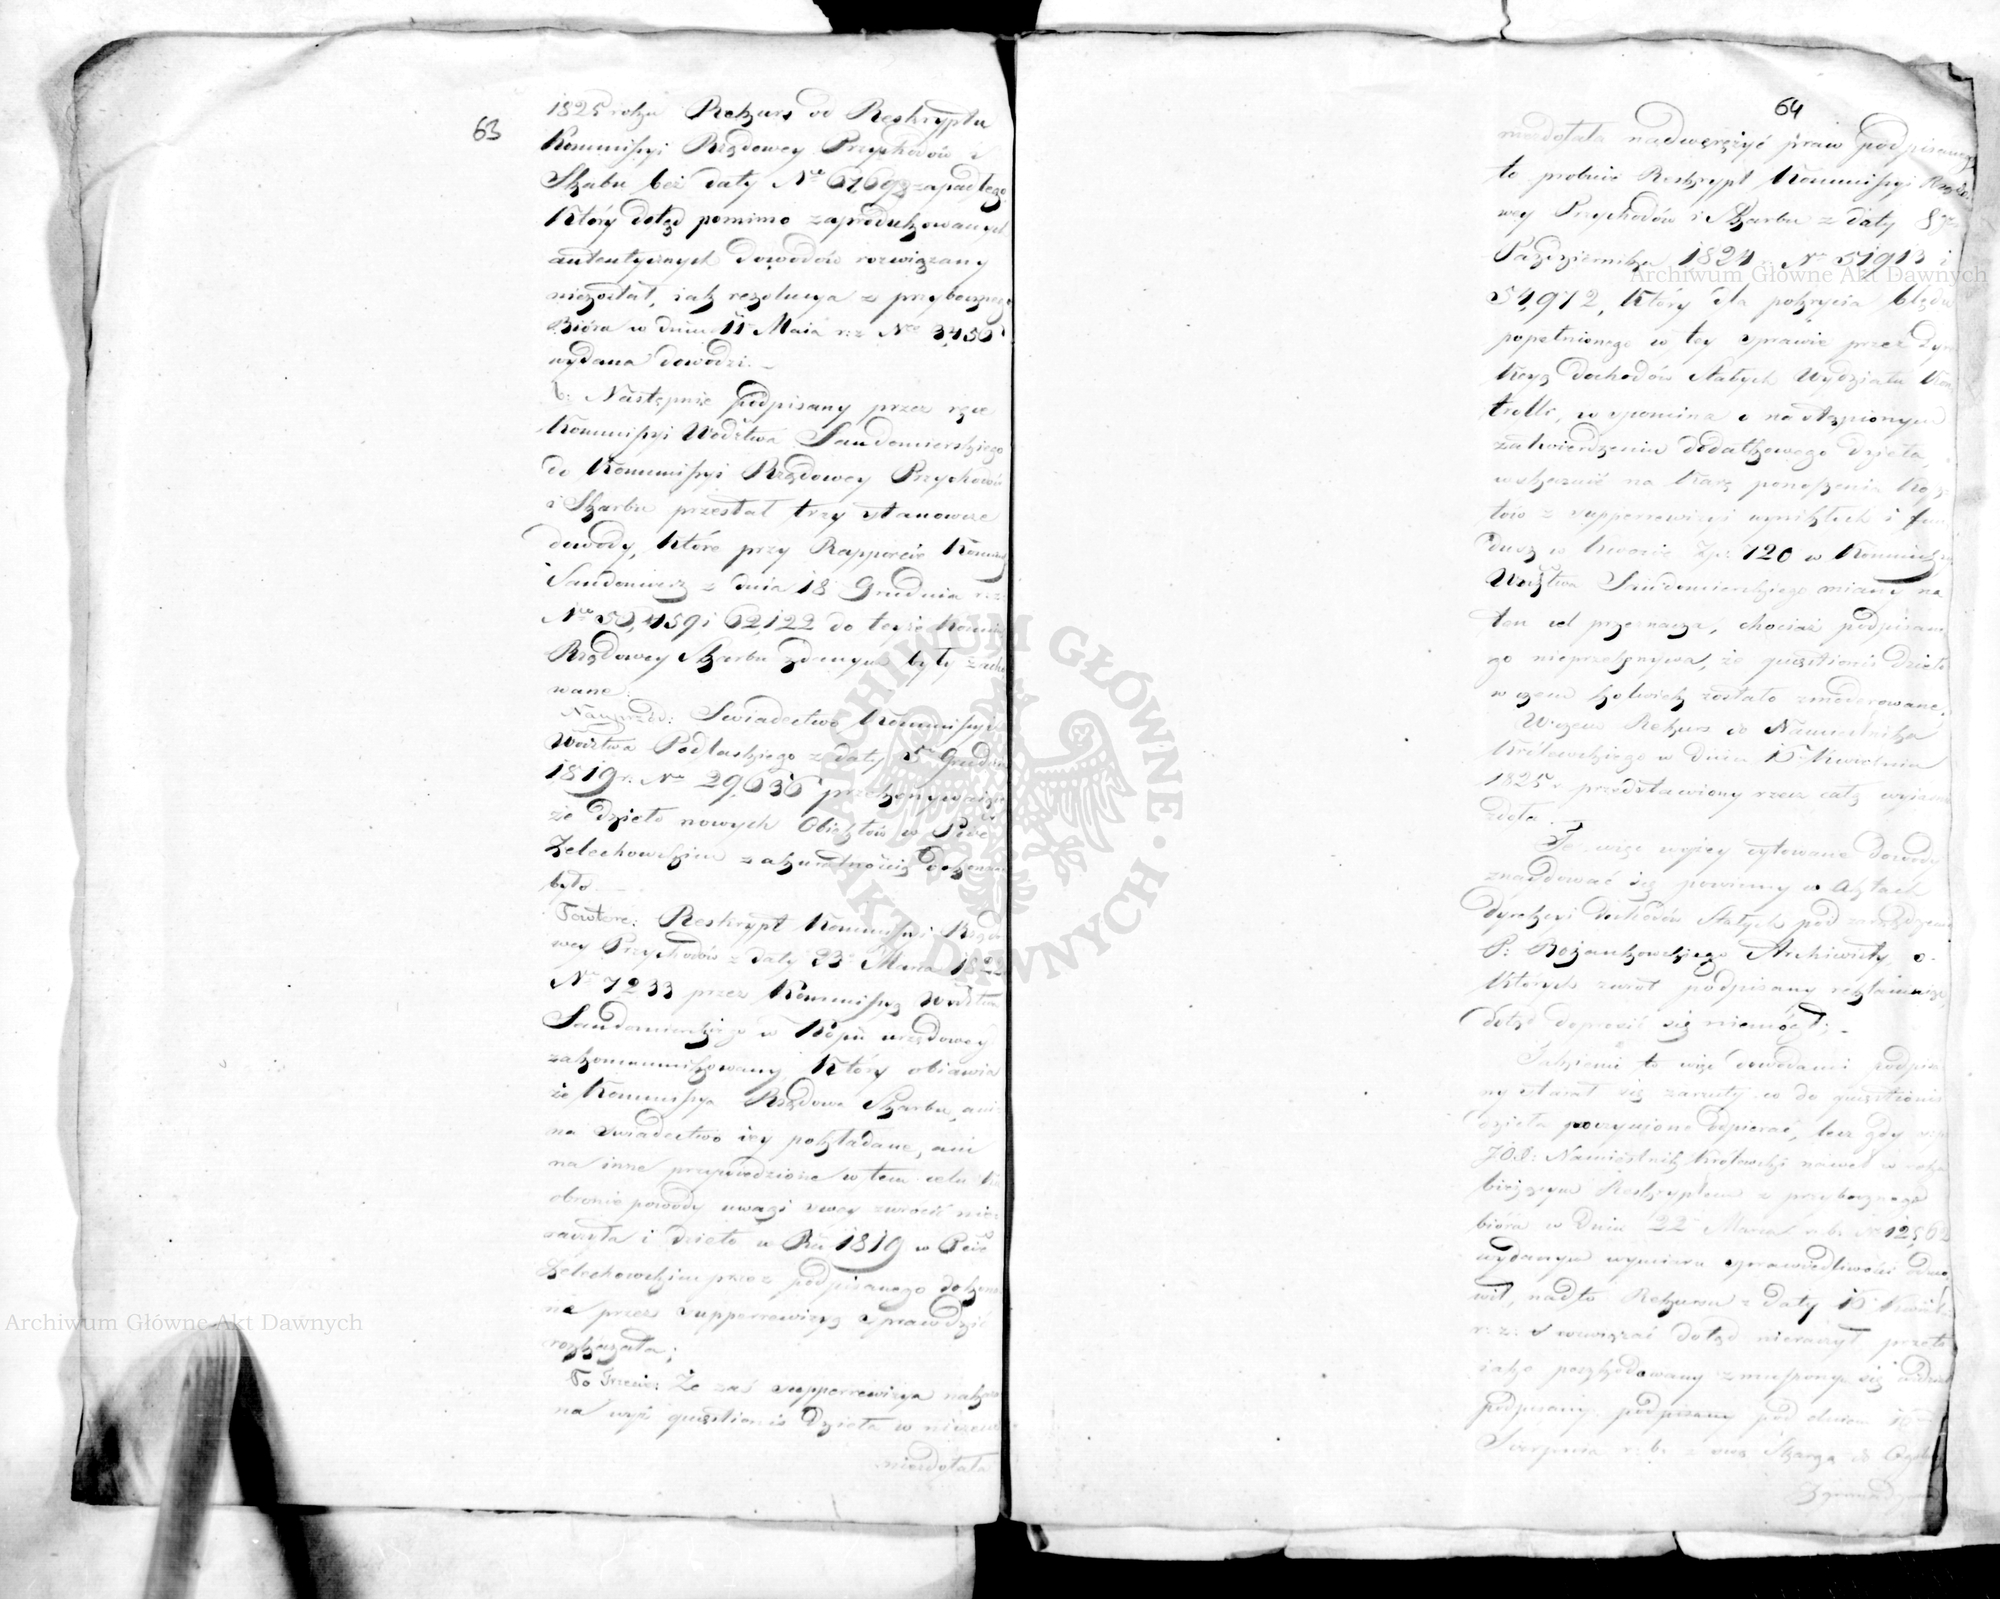 63
1825 roku Rekurs od Reskryptu
Kommissyi Rządowey Przychodów i
Skarbu bez daty Nro 67,698 zapadłego
Który dotąd pomimo zaprodukowanych
autentycznych dowodów rozwiązany
niezostał, iak rezolucya z przybocznego
Bióra w dniu 11 Maia r: z Nro 3,456
wydana dowodzi. –
b: Następnie podpisany przez ręce
Kommissyi Wodztwa Sandomierskiego
do Kommissyi Rządowey Przychodów
i Skarbu przesłał trzy stanowcze
dowody, Które przy Rapporcie
Sandomierz z dnia 18 Grudnia r: z
459 i 62,122 do teyże
Rządowey Skarbu były
wane.
Nayprzód: Swiadectwo Kommissyi
Wodztwa Podlaskiego z daty 5 Grudnia
1819 r. Nro 29,636 przekonywaiące
że dzieło nowych Obiektów w
Żelechowskim z akuratnością
było
Powtóre: Reskrypt Kommissyi Rządo
wey Przychodów z daty 23 Marca 1822
Nro 7233 przez Kommissyą Wodztwa
Sandomierskiego w Kopii urzędowey
zakommunikowany, Który obiawia
że Kommissya Rządowa Skarbu, ani
na swiadectwo iey pokładane, ani
na inne przywiedzione w tem celu
obronie powody uwagi swey zwrócić nie
raczyła i dzieło w Ru 1819 w
Żelechowskim przez podpisanego dokona
ne przez supperrewizyą sprawdzić
rozkazała;
Po Trzecie: Że zaś supperrewizya
na wyż questionis dzieła w niczem
niezdołała
64
niezdołała nadwerężyć praw podpisanego
to probuie Reskrypt Kommissyi
wey Przychodów i Skarbu z daty 8
Października 1824 Nro 51913 i
54,972, Który dla pokrycia błędu
popełnionego w tey sprawie przez Dyre
Kcyą dochodów Stałych Wydziału Kon
trolli, wspomina o nastąpionym
zatwierdzeniu dodatkowego dzieła,
na Karę ponoszenia Kosz
tów z supperrewizyi wynikłych i fun
dusz w kwocie Zp: 720 w Kommissyi
Wodztwa Sandomierskiego miany na
ten cel przeznacza, chociaż podpisane
go nieprzekonywa, że questionis dzieło
w czem kolwiek zostało zmoderowane.
W czem Rekurs do Namiestnika
Królewskiego w Dniu 15 Kwietnia
1825 r. przedstawiony rzecz całą
Te więc wyżey cytowane Dowody
znaydować się powinny w Aktach
dyrekcyi dochodów Stałych pod
P: Bożankowskiego Archiwisty, o
Których zwrot podpisany reklamuiąc,
dotąd doprosić się niemógł; –
Takiemi to więc dowodami podpisa
ny starał się zarzuty co do questionis
dzieła poczynione odpierać, lecz gdy
J.O.X: Namiestnik Królewski nawet w roku
bieżącym Reskryptem z przybocznego
bióra w Dniu 22 Marca r. b. Nro 12,562
wydanym wymiaru sprawiedliwości odmó
wił, nadto Rekursu z daty 15
r: z: rozwiązać dotąd nieraczył przeto
iako poszkodowany zmuszonym się
podpisany podpisany pod dniem
Sierpnia r. b. z Skargą do